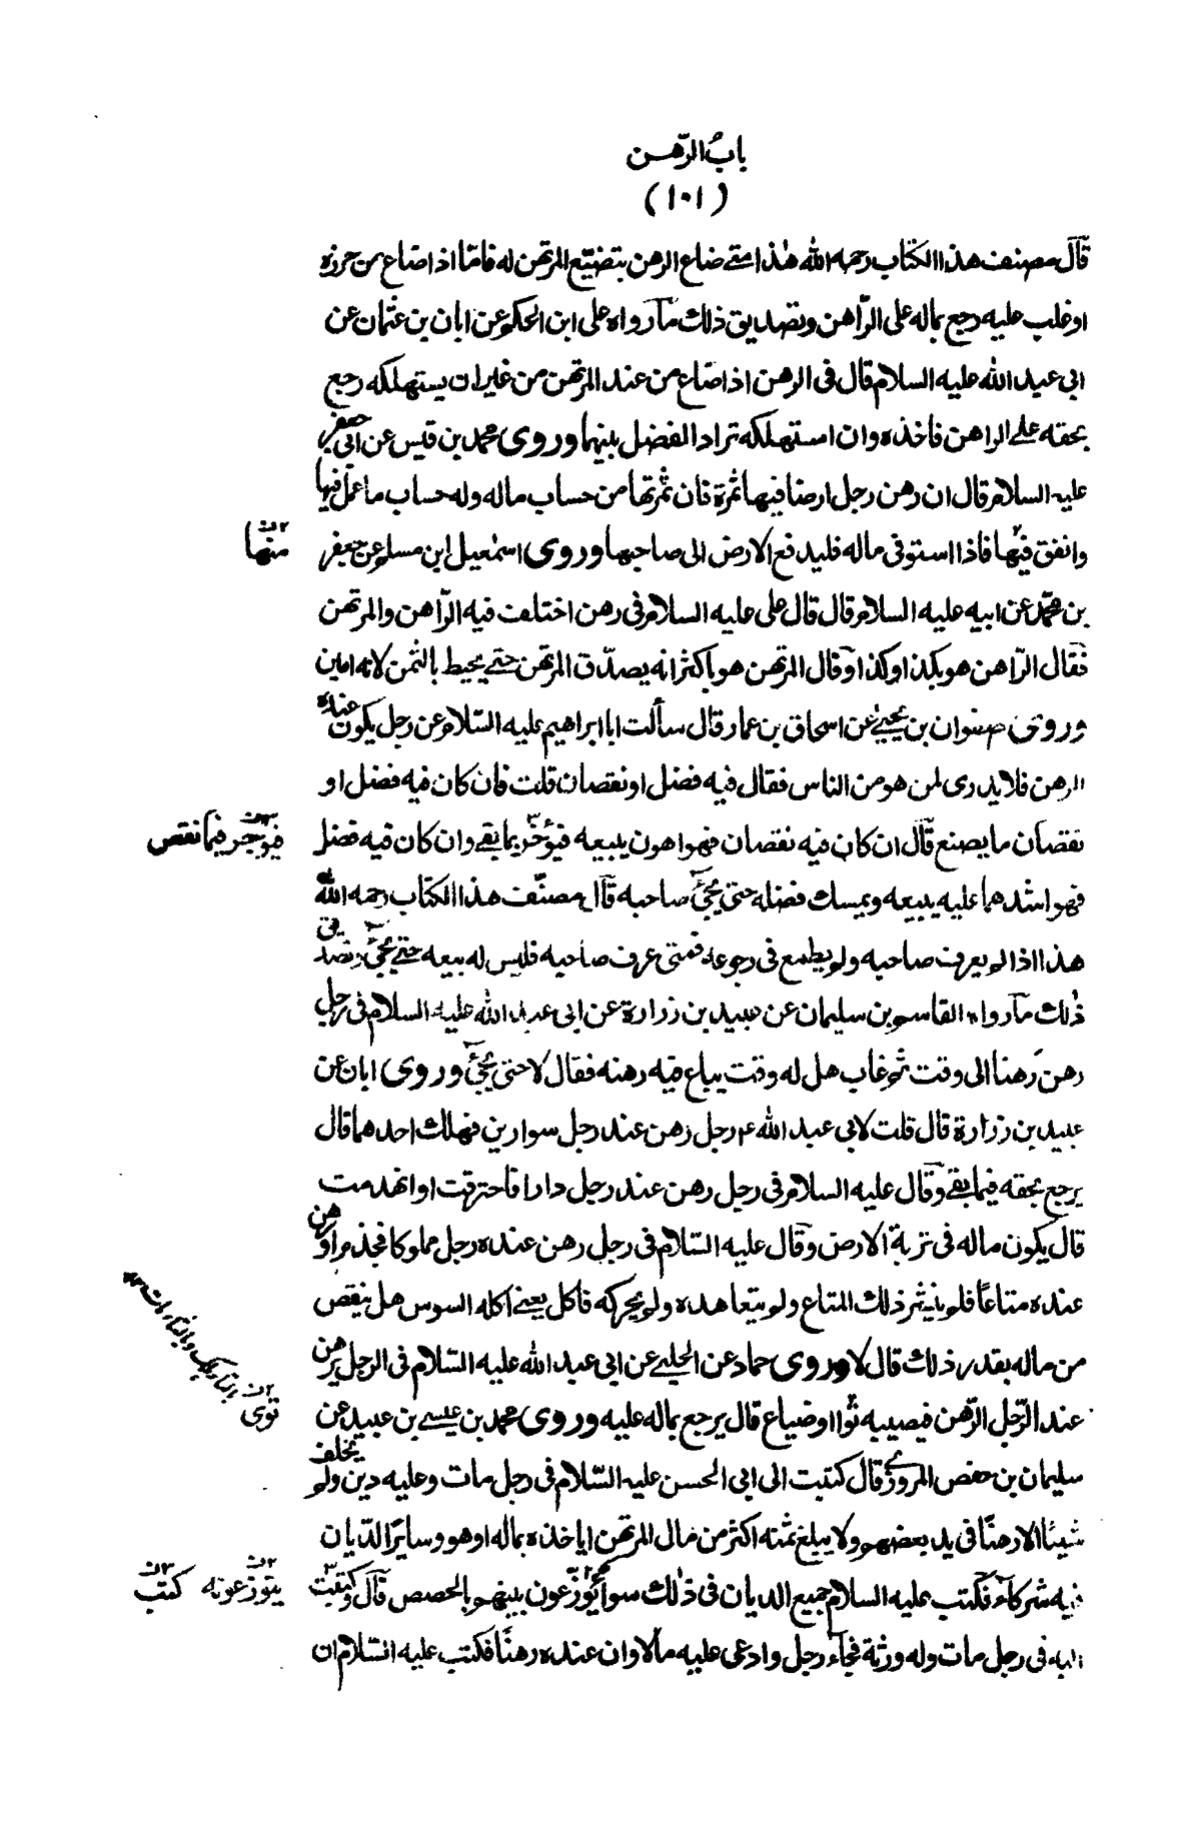 بابُ الرّهن
(١٠١)
قآل مصنف هذا الكتاب رحمه الله هٰذا متے ضاع الرهن بتضيّع المرتهن له فامّا اذا ضاع من حرزه
او غلب عليه رجع بماله على الرّاهن وتصديق ذلك مآ رواه على ابن الحكم عن ابان بن عثمان عن
ابى عبد الله عليه السلام قال فى الرهن اذا ضاع من عند المرتهن من غير ان يستهلكه رجع
بحقه علے الراهن فاخذه وان استهلكه تراد الفضل بينهما وروى محمد بن قيس عن ابى جعفر
عليه السلام قال ان رهن رجل ارضا فيها ثمرة فان ثمرتها من حساب ماله وله حساب ما عمل فيها
وانفق فيها فاذا استوفى ماله فليدفع الارض الى صاحبها وروى اسمٰعيل ابن مسلم عن جعفر
منها
بن محمّد عن ابيه عليه السلام قال قال على عليه السلام فى رهن اختلف فيه الرّاهن والمرتهن
فقال الرّاهن هو بكذا وكذا وقال المرتهن هو باكثر انه يصدّق المرتهن حتے يحيط بالثمن لانه امين
وروى صفوان بن يحيےٰ عن اسحاق بن عمار قال سألت ابا ابراهيم عليه السّلام عن رجل يكون عنده
الرهن فلا يدرى لمن هو من الناس فقال فيه فضل او نقصان قلت فان كان فيه فضل او
نقصان ما يصنع قآل ان كان فيه نقصان فهو اهون يبيعه فيؤخّر بما بقے وان كان فيه فضل
فيوجر فيما نقص
فهو اشدهما عليه يبيعه ويمسك فضله حتى يجئ صاحبه قآل مصنّف هذا الكتاب رحمه الله
هذا اذا لم يعرف صاحبه ولم يطمع فى رجوعه فمتى عرف صاحبه فليس له بيعه حتے يجئ وتصديق
ذٰلك مآ رواه القاسم بن سليمان عن عبيد بن زرارة عن ابى عبد الله عليه السلام فى رجل
رهن رَهنا الى وقت ثم غاب هل له وقت يباع فيه رهنه فقال لا حتى يجئ وروى ابان عن
عبيد بن زرارة قال قلت لابى عبد الله ع رجل رهن عند رجل سوارين فهلك احدهما قال
يرجع بحقه فيما بقے وقال عليه السلام فى رجل رهن عند رجل دارا فاحترقت او انهدمت
قال يكون ماله فى تربة الارض وقال عليه السّلام فى رجل رهن عنده رجل مملوكا فجذم او رهن
عنده متاعًا فلم ينشر ذلك المتاع ولم يتعاهده ولم يحركه فاكل يعنے اكله السوس هل ينقص
من ماله بقدر ذلك قال لا وروى حماد عن الحلبے عن ابى عبد الله عليه السّلام فى الرجل يرهن
عند الرّجل الرّهن فيصيبه توا او ضياع قال يرجع بماله عليه وروى محمد بن عيسے بن عبيد عن
توى
سليمان بن حفص المروزے قال كتبت الى ابى الحسن عليه السّلام فى رجل مات وعليه دين ولم يخلف
شيئا الا رهنًا فى يد بعضهم ولا يبلغ ثمنه اكثر من مال المرتهن اياخذه بماله او هو وساير الدّيان
فيه شركآء فكتب عليه السلام جميع الديان فى ذٰلك سوآء يتوزّعون بينهم بالحصص قآل وكتبت
يتوزعونه كتب
اليه فى رجل مات وله ورثة فجآء رجل وادعى عليه مالا وان عنده رهنًا فكتب عليه السّلام ان